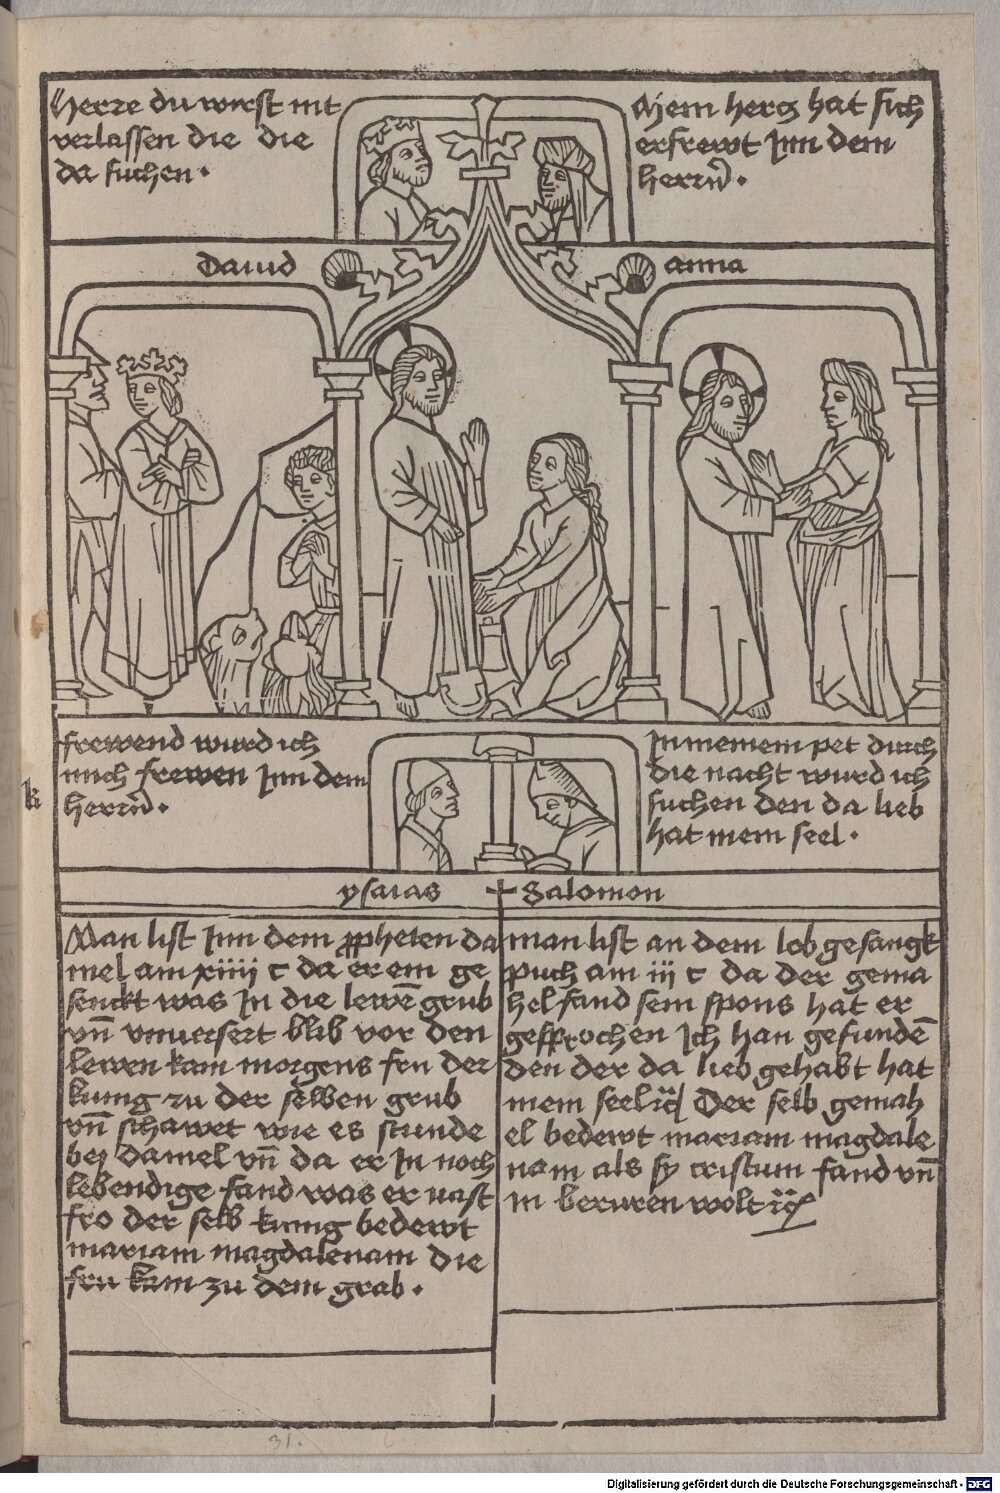 Herre du wirst nit
verlassen die die
da suchen.
Mein hercz hat sich
erfrewt Inn dem
herrñ.
Dauid
anna
frewend wurd ich
mich frewen Inn dem
herrñ.
k
In meinem pet durch
die nacht wurd ich
suchen den da lieb
hat mein seel.
ysaias
Salomon
Man list Inn dem ppheten da
niel am xiiij c da er ein ge
senckt was In die lewē grub
vñ vnuersert blib vor den
lewen kam morgens fru der
kunig zu der selben grub
vñ schawet wie es stunde
bei daniel vñ da er In noch
lebendige fand was er vast
fro der selb kunig bedewt
mariam magdalenam die
fru kam zu dem grab.
man list an dem lobgesangk
puch am iij c da der gema
hel fand sein spons hat er
gesprochen Ich han gefundē
den der da lieb gehabt hat
mein seel ꝛc̈ Der selb gemah
el bedewt mariam magdale
nam als sy cristum fand vñ
in beruren wolt ꝛc̈
31.
Digitalisierung gefördert durch die Deutsche Forschungsgemeinschaft - DFG